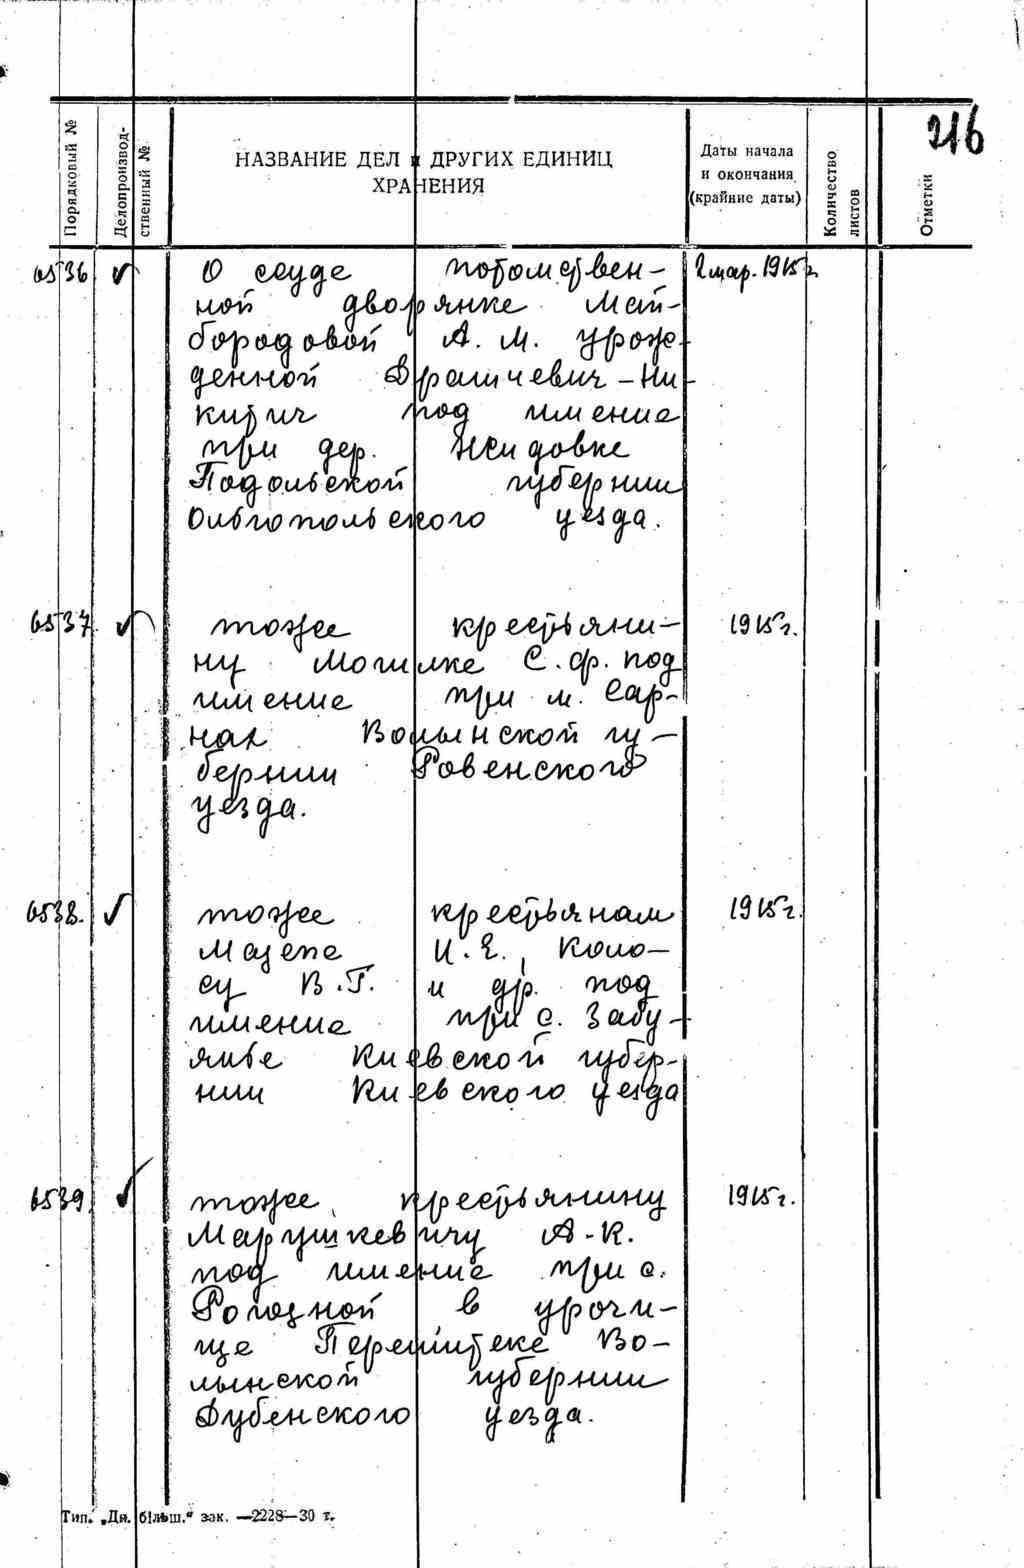 216
Порядковый №
Делопроизвод-
ственный №
НАЗВАНИЕ ДЕЛ и ДРУГИХ ЕДИНИЦ
ХРАНЕНИЯ
Даты начала
и окончания
(крайние даты)
Количество
листов
Отметки
6536 ✓ О ссуде потомствен- 2 мар. 1915 г.
ной дворянке Май-
бородовой А. М. урож-
денной Драшчевич-Ни-
китич под имение
при дер. Жидовке
Подольской губернии
Ольгопольского уезда.
6537. ✓ тоже крестьяни- 1915 г.
ну Могилке С. Ф. под
имение при м. Сар-
нах Волынской гу-
бернии Ровенского
уезда.
6538. ✓ тоже крестьянам 1915 г.
Мазепе И. Е., Коло-
су В. Г. и др. под
имение при с. Забу-
янье Киевской губер-
нии Киевского уезда
6539. ✓ тоже крестьянину 1915 г.
Марушкевичу А. К.
под имение при с.
Рогозной в урочи-
ще Во-
лынской губернии
Дубенского уезда.
Тип. „Дн. більш." зак. —2228—30 т.